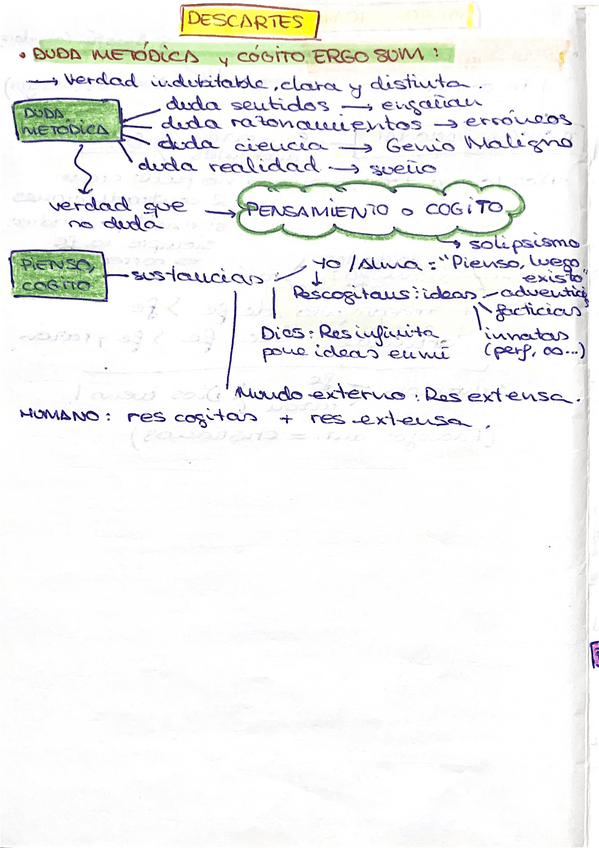 DESCARTES
• DUDA METÓDICA y CÓGITO ERGO SUM:
→ Verdad indubitable, clara y distinta.
DUDA METÓDICA
duda sentidos → engañan
duda razonamientos → erróneos
duda ciencia → Genio Maligno
duda realidad → sueño
verdad que no duda → PENSAMIENTO o COGITO
↳ solipsismo
PIENSO, COGITO
sustancias:
Yo /Alma: "Pienso, luego existo"
Rescogitans: ideas
adventicias
facticias
innatas (perf, ∞...)
Dios: Res infinita pone ideas en mí
Mundo externo: Res extensa.
HUMANO: res cogitas + res extensa.